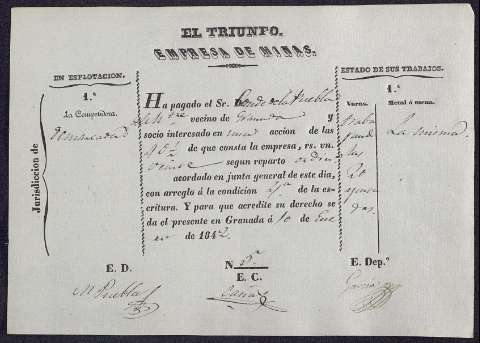 EL TRIUNFO.
EMPRESA DE MINAS.
EN ESPLOTACION.
1.ª
La Competidora.
Jurisdiccion de
Ha pagado el Sr. Conde de la Puebla
vecino de Granada y
socio interesado en una accion de las
de que consta la empresa, rs. vn.
veinte segun reparto ordin.º
acordado en junta general de este dia,
con arreglo á la condicion de la es-
critura. Y para que acredite su derecho se
da el presente en Granada á 10 de Ene
ro de 1842
ESTADO DE SUS TRABAJOS.
1.ª
Varas.
Metal ó mena.
La misma
E. D.
M Puebla
N
E. C.
E. Dep.º
García